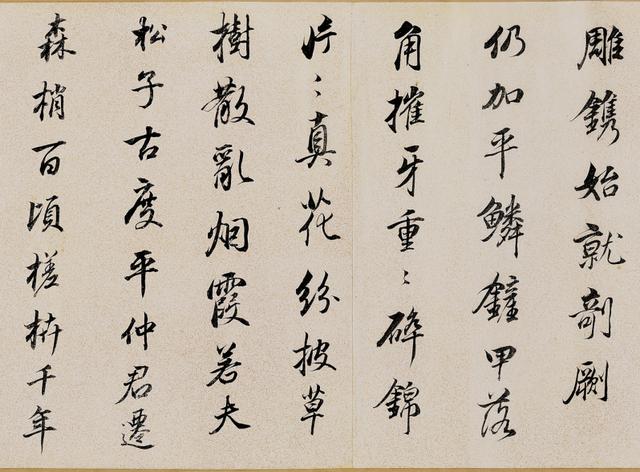 雕鐫始就剞劂
仍加平鱗鏟甲落
角摧牙重〻碎錦
片〻真花紛披草
樹散亂烟霞若夫
松子古度平仲君遷
森梢百頃槎枿千年